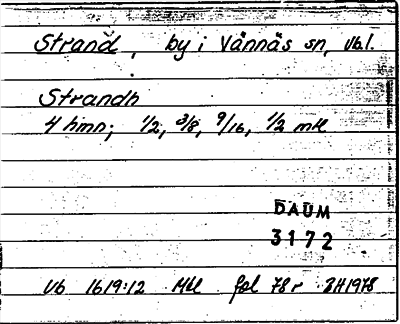 Strand, by i Vännäs sn, Vbl.
Strandh
4 hmn; 1/2, 3/8, 9/16, 1/2 mtl
DAUM
3172
Vb 1619:12 Mtl fol 78r BH1978